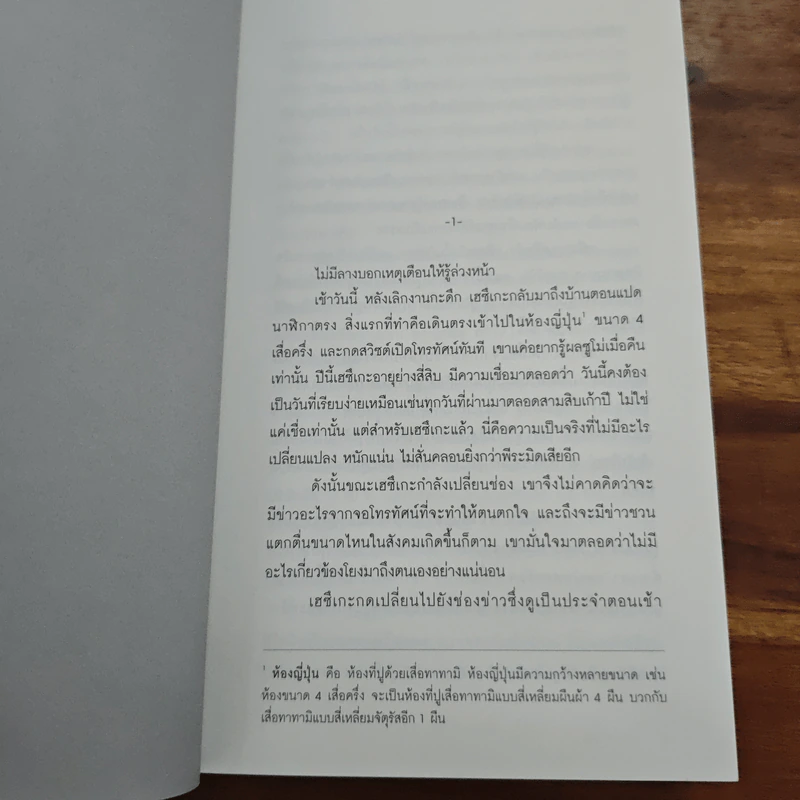 -1-
ไม่มีลางบอกเหตุเตือนให้รู้ล่วงหน้า
เช้าวันนี้ หลังเลิกงานกะดึก เฮซึเกะกลับมาถึงบ้านตอนแปด
นาฬิกาตรง สิ่งแรกที่ทำคือเดินตรงเข้าไปในห้องญี่ปุ่น¹ ขนาด 4
เสื่อครึ่ง และกดสวิซต์เปิดโทรทัศน์ทันที เขาแค่อยากรู้ผลซูโม่เมื่อคืน
เท่านั้น ปีนี้เฮซึเกะอายุย่างสี่สิบ มีความเชื่อมาตลอดว่า วันนี้คงต้อง
เป็นวันที่เรียบง่ายเหมือนเช่นทุกวันที่ผ่านมาตลอดสามสิบเก้าปี ไม่ใช่
แค่เชื่อเท่านั้น แต่สำหรับเฮซึเกะแล้ว นี่คือความเป็นจริงที่ไม่มีอะไร
เปลี่ยนแปลง หนักแน่น ไม่สั่นคลอนยิ่งกว่าพีระมิดเสียอีก
ดังนั้นขณะเฮซึเกะกำลังเปลี่ยนช่อง เขาจึงไม่คาดคิดว่าจะ
มีข่าวอะไรจากจอโทรทัศน์ที่จะทำให้ตนตกใจ และถึงจะมีข่าวชวน
แตกตื่นขนาดไหนในสังคมเกิดขึ้นก็ตาม เขามั่นใจมาตลอดว่าไม่มี
อะไรเกี่ยวข้องโยงมาถึงตนเองอย่างแน่นอน
เฮซึเกะกดเปลี่ยนไปยังช่องข่าวซึ่งดูเป็นประจำตอนเช้า
¹ ห้องญี่ปุ่น คือ ห้องที่ปูด้วยเสื่อทาทามิ ห้องญี่ปุ่นมีความกว้างหลายขนาด เช่น
ห้องขนาด 4 เสื่อครึ่ง จะเป็นห้องที่ปูเสื่อทาทามิแบบสี่เหลี่ยมผืนผ้า 4 ผืน บวกกับ
เสื่อทาทามิแบบสี่เหลี่ยมจัตุรัสอีก 1 ผืน